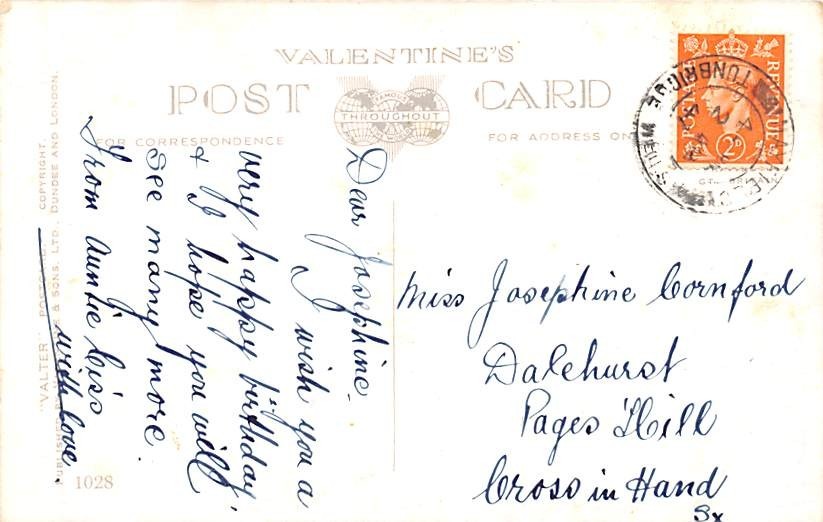 VALENTINE'S
POST CARD
FAMOUS
THROUGHOUT
FOR CORRESPONDENCE
FOR ADDRESS ON
REVENUE
2D
TUNBRIDGE WE
Dear Josephine.
I wish you a
very happy birthday,
& I hope you will
see many more.
From Auntie Ciss
with love
Miss Josephine Cornford
Dalehurst
Pages Hill
Cross in Hand
Sx
"VALTER" POSTCA
COPYRIGHT.
PUBLISHED & SONS, LTD., DUNDEE AND LONDON.
1028